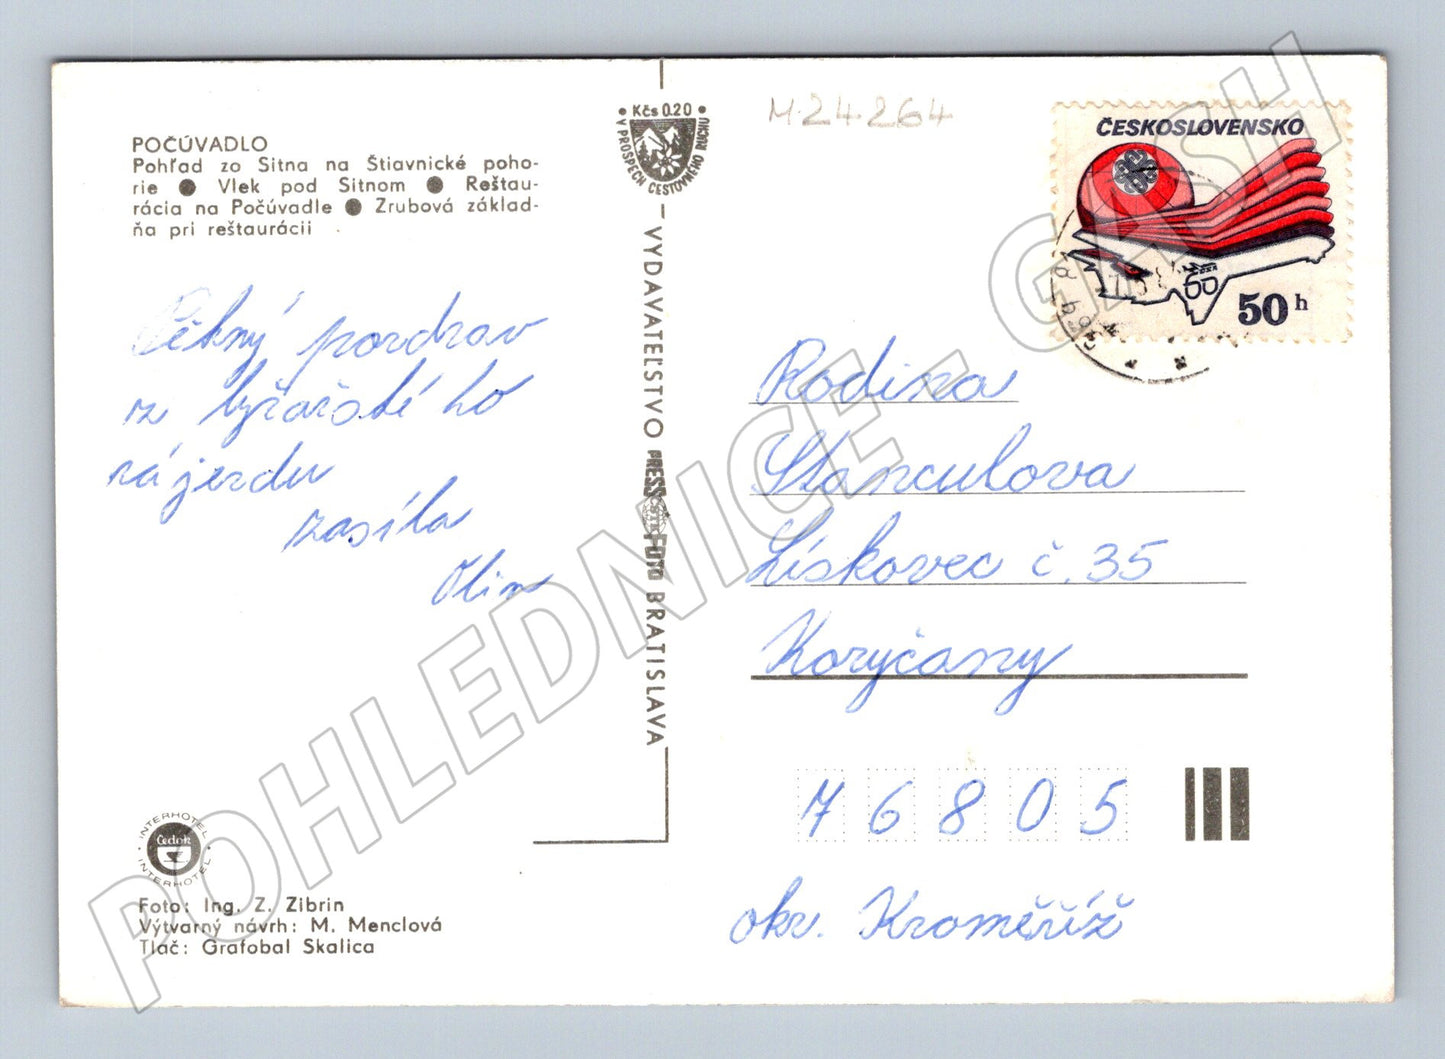 POČÚVADLO
Pohľad zo Sitna na Štiavnické poho-
rie ● Vlek pod Sitnom ● Reštau-
rácia na Počúvadle ● Zrubová základ-
ňa pri reštaurácii
Pěkný pozdrav
z lyžařského
zájezdu
zasíla
Kčs 0.20
V PROSPECH CESTOVNÉHO RUCHU
VYDAVATEĽSTVO PRESSFOTO BRATISLAVA
M-24-264
ČESKOSLOVENSKO
50 h
Rodina
Stanculova
Lískovec č. 35
Koryčany
76805
okr. Kroměříž
INTERHOTEL
Čedok
INTERHOTEL
Foto: Ing. Z. Zibrin
Výtvarný návrh: M. Menclová
Tlač: Grafobal Skalica
POHLEDNICE - GASH